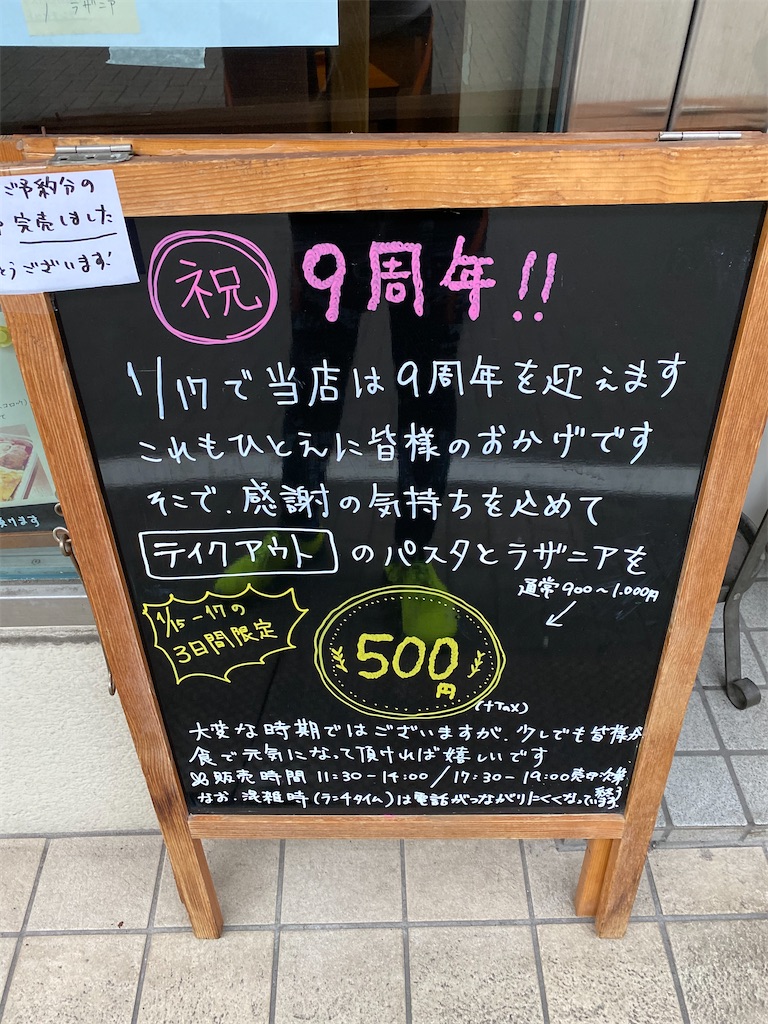 ラザニア
ご予約分の
完売しました
とうございます!
祝 9周年!!
1/17で当店は9周年を迎えます
これもひとえに皆様のおかげです
そこで、感謝の気持ちを込めて
テイクアウト のパスタとラザニアを
通常900〜1.000円
1/15-17の
3日間限定
500円
(+Tax)
大変な時期ではございますが、少しでも皆様が
食で元気になって頂ければ嬉しいです
※販売時間 11:30-14:00/17:30-19:00売切次第終了
なお、混雑時(ランチタイム)は電話がつながりにくくなっています